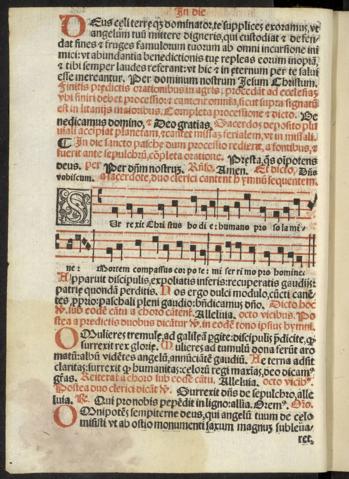 In die
DEus celi terreqꝫ dominator, te supplices exoramus, vt
angelum tuū mittere digneris, qui custodiat ⁊ defen
dat fines ⁊ fruges famulorum tuorum ab omni incursione ini
mici: vt abundantia benedictionis tue repleas eorum inopiā,
⁊ tibi semper laudes referant: vt hic ⁊ in eternum per te salui
esse mereantur. Per dominum nostrum Jesum Christum.
Finitis predictis orationibus in agris: procedāt ad ecclesiaꝫ
vbi finiri debet processio: ⁊ cantent omnia, sicut supra signatū
est in litanijs maioribus. Completa processione ⁊ dicto. Be
nedicamus domino, ⁊ Deo gratias, Sacerdos deposito pluuiali accipiat planetam, ⁊ cātet missaꝫ ferialem, vt in missali.
¶ In die sancto pasche dum processio redierit, a fontibus, ⁊
fuerit ante sepulchrū, cōpleta oratione. Presta, qs̄ oīpotens
deus. per Per dn̄m nostruꝫ. Rn̄so. Amen. Et dicto, Dn̄s
vobiscum. a sacerdote, duo clerici cantent hymnū sequentem.
SUr rexit Chri stus ho di e: humano pro so la mi/
ne: Mortem compassus cor po re: mi ser ri mo pro homine:
Apparuit discipulis, expoliatis inferis: recuperatis gaudijs:
patrie quondā perditis. Nos ergo dulci modulo, cūcti canē
tes pprio: paschali pleni gaudio: bn̄dicamus dn̄o. Dicto hoc
℣. sub eodē cātu a choro cātent. Alleluia. octo vicibus. Po
stea a predictis duobus dicātur ℣. in eodē tono ipsius hymni.
OMulieres tremule, ad galileā ꝑgite: discipulis p̄dicite, ꝙ
surrexit rex glorie. Mulieres ad tumulū dona ferūt aro
matū: albū vidētes angelū, annūciātē gaudiū. Aeterna adsit
claritas: surrexit ꝙ humanitas: celorū regi maxias, deo dicam⁹
gr̄as. Reiterat a choro sub eodē cātu. Alleluia. octo vicib⁹.
Postea duo clerici dicāt ℣. Surrexit dn̄s de sepulchro, alle
luia. ℟. Qui pro nobis pepēdit in ligno: all̄ia. Orem⁹. Oro.
OMnipotēs sempiterne deus, qui angelū tuum de celo
misisti vt ab ostio monumenti saxum magnuꝫ subleua/
ret,